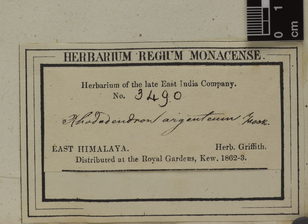 HERBARIUM REGIUM MONACENSE.
Herbarium of the late East India Company.
No. 3490
Rhododendron argenteum Hook.
EAST HIMALAYA. Herb. Griffith.
Distributed at the Royal Gardens, Kew. 1862-3.
0
1
cm